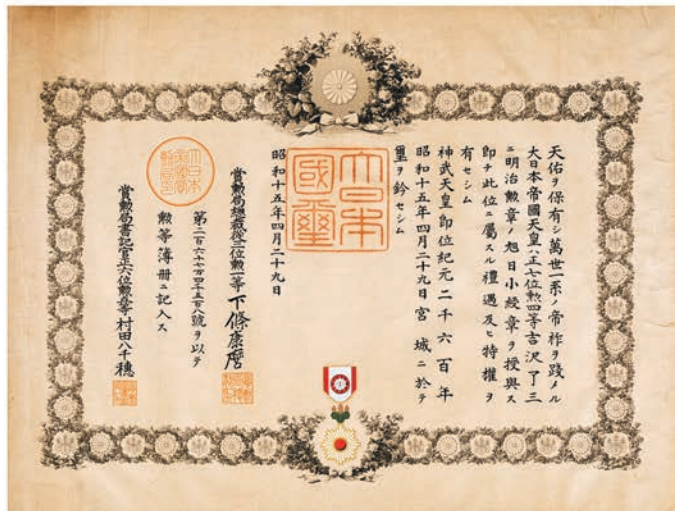 天佑ヲ保有シ萬世一系ノ帝祚ヲ踐メル
大日本帝國天皇ハ正七位勲四等吉沢了三
ニ明治勲章ノ旭日小綬章ヲ授與ス
即チ此位ニ屬スル禮遇及ヒ特權ヲ
有セシム
神武天皇即位紀元二千六百年
昭和十五年四月二十九日宮城ニ於テ
璽ヲ鈐セシム
大日本
國璽
昭和十五年四月二十九日
賞勲局總裁從三位勲一等下條康麿
第二百六十七万四千五百八號ヲ以テ
勲等簿册ニ記入ス
賞勲局書記官正六位勲五等村田八千穂